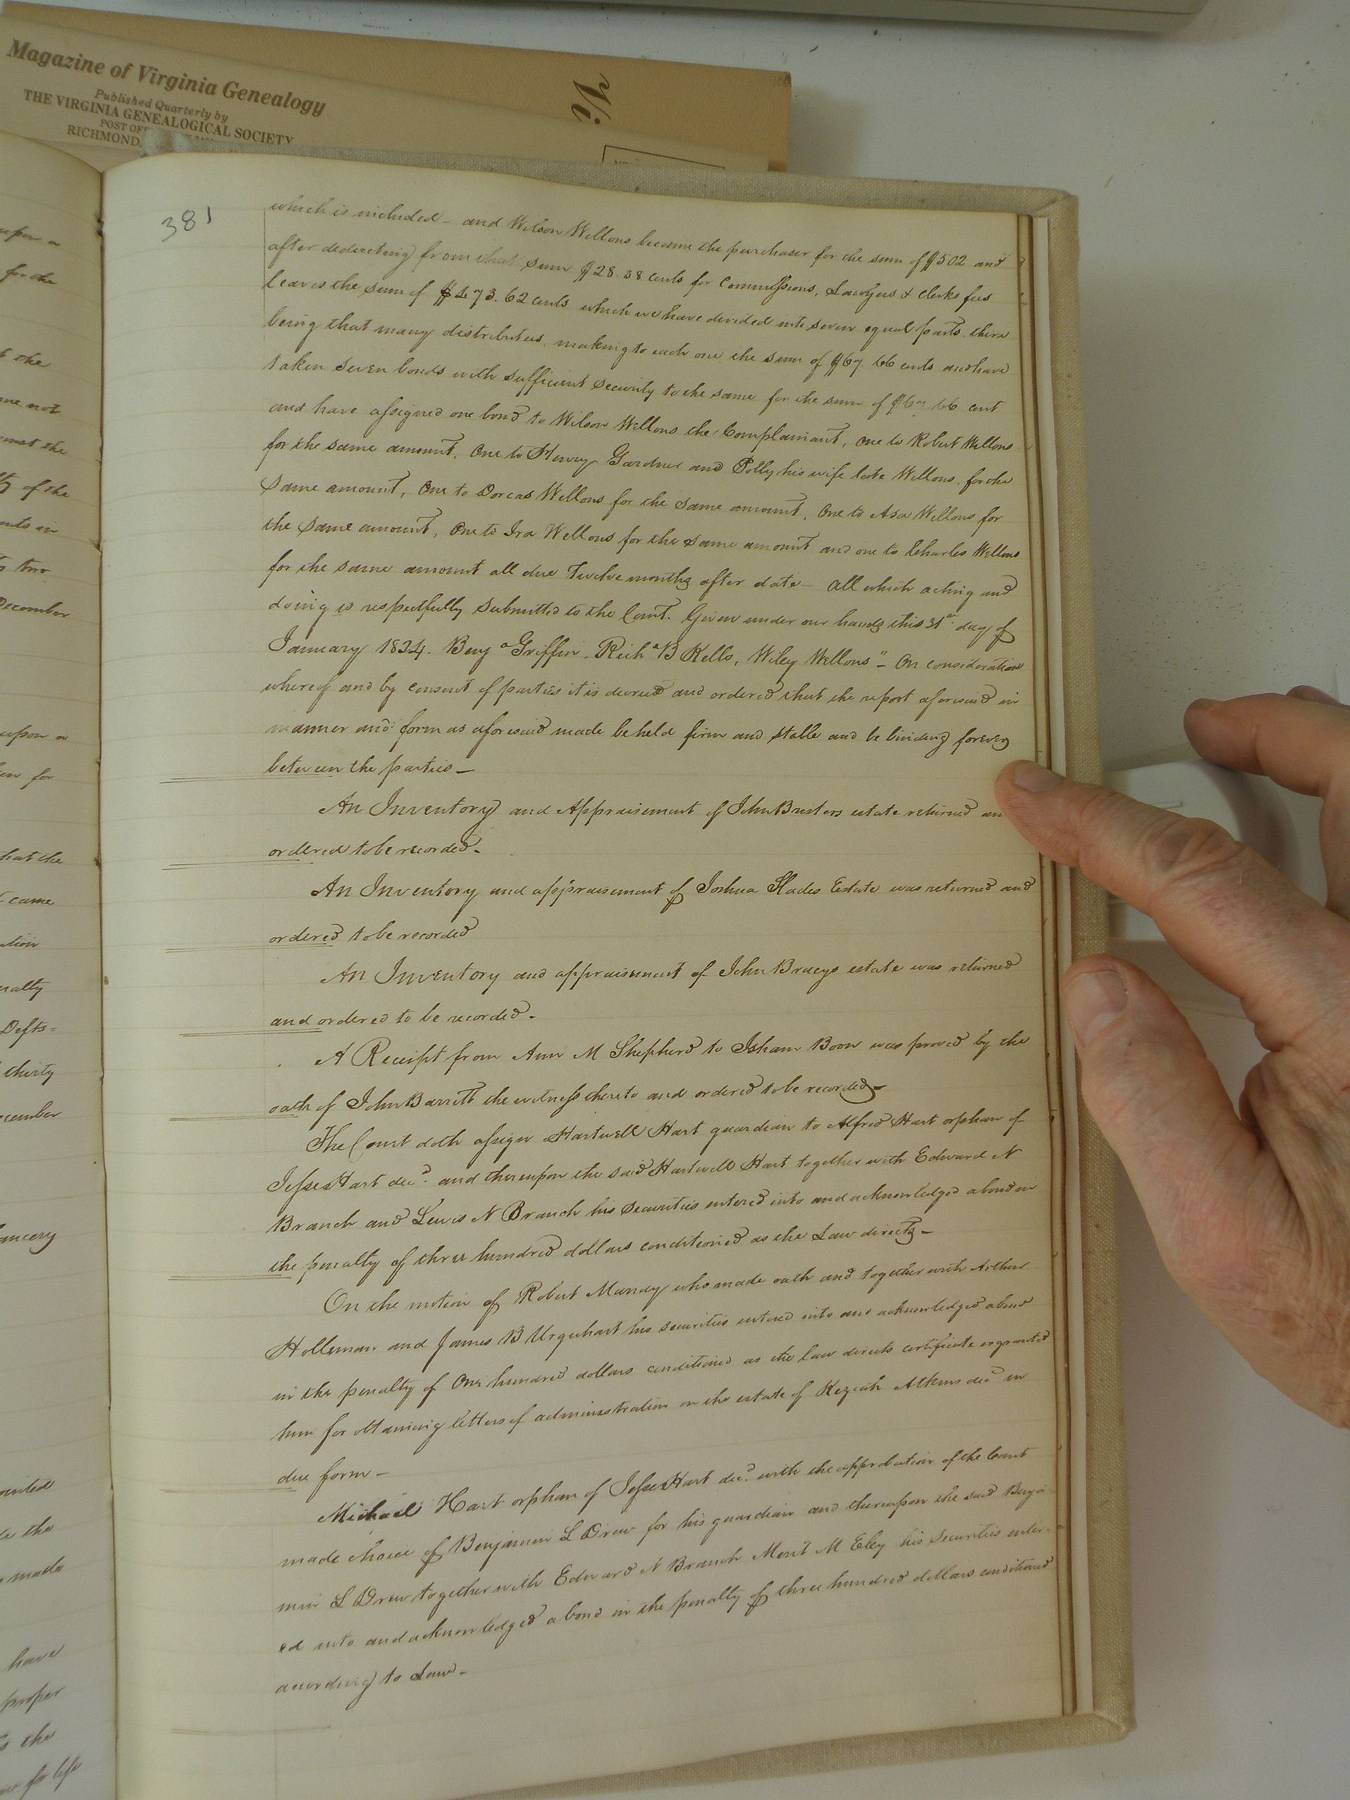 Magazine of Virginia Genealogy
Published Quarterly by
THE VIRGINIA GENEALOGICAL SOCIETY
POST OF
RICHMOND,
381
which is included - and Wilson Willons became the purchaser for the sum of $502 and
after dedecting from that sum $28.38 cents for Commissions, Lawyers & Clerks fees
leaves the sum of $473.62 cents which we have devided into seven equal parts there
being that many distributees making to each one the sum of $67.66 cents and have
taken seven bonds with sufficient security to the same for the sum of $67.66 cent
and have assigned one bond to Wilson Willons the Complainant, One to Robert Willons
for the same amount, One to Henry Gardner and Polly his wife late Willons, for the
same amount, One to Dorcas Willons for the same amount, One to Asa Willons for
the same amount, One to Ira Willons for the same amount and one to Charles Willons
for the same amount all due Twelve months after date - All which acting and
doing is respectfully submitted to the Court. Given under our hands this 31st day of
January 1824. Benj a Griffin. Rich d B Kello, Wiley Willons" - On consideration
whereof and by consent of parties it is decreed and ordered that the report aforesaid in
manner and form as aforesaid made be held firm and stable and be binding forever
between the parties -
An Inventory and Appraisement of John Busters estate returned an
ordered to be recorded -
An Inventory and appraisement of Joshua Slades Estate was returned and
ordered to be recorded
An Inventory and appraisement of John Braceys estate was returned
and ordered to be recorded -
A Receipt from Ann M Shepherd to Isham Boon was proved by the
oath of John Barrett the witness thereto and ordered to be recorded -
The Court doth assign Hartwell Hart guardian to Alfred Hart orphan of
Jesse Hart decd. and thereupon the said Hartwell Hart together with Edward N
Branch and Lewis N Branch his securities entered into and acknowledged a bond in
the penalty of three hundred dollars conditioned as the Law directs -
On the motion of Robert Mundy who made oath and together with Arthur
Holleman and James B Urquhart his securities entered into and acknowledged abond
in the penalty of One hundred dollars conditioned as the law directs certificate is granted
him for obtaining letters of administration on the estate of Keziah Atkins decd in
due form -
Michael Hart orphan of Jesse Hart decd. with the approbation of the Court
made choice of Benjamin L Drew for his guardian and thereupon the said Benja-
min L Drew together with Edward N Branch M M Eley his securities enter-
ed into and acknowledged a bond in the penalty of three hundred dollars conditioned
according to Law -